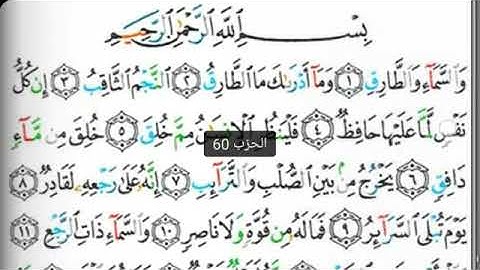 بِسْمِ اللَّهِ الرَّحْمَٰنِ الرَّحِيمِ
وَالسَّمَاءِ وَالطَّارِقِ ١ وَمَا أَدْرَاكَ مَا الطَّارِقُ ٢ النَّجْمُ الثَّاقِبُ ٣ إِن كُلُّ
نَفْسٍ لَّمَّا عَلَيْهَا حَافِظٌ ٤ فَلْيَنظُرِ الْإِنسَٰنُ مِمَّ خُلِقَ ٥ خُلِقَ مِن مَّاءٍ
الحزب 60
دَافِقٍ ٦ يَخْرُجُ مِن بَيْنِ الصُّلْبِ وَالتَّرَائِبِ ٧ إِنَّهُ عَلَىٰ رَجْعِهِ لَقَادِرٌ ٨
يَوْمَ تُبْلَى السَّرَائِرُ ٩ فَمَا لَهُ مِن قُوَّةٍ وَلَا نَاصِرٍ ١٠ وَالسَّمَاءِ ذَاتِ الرَّجْعِ ١١